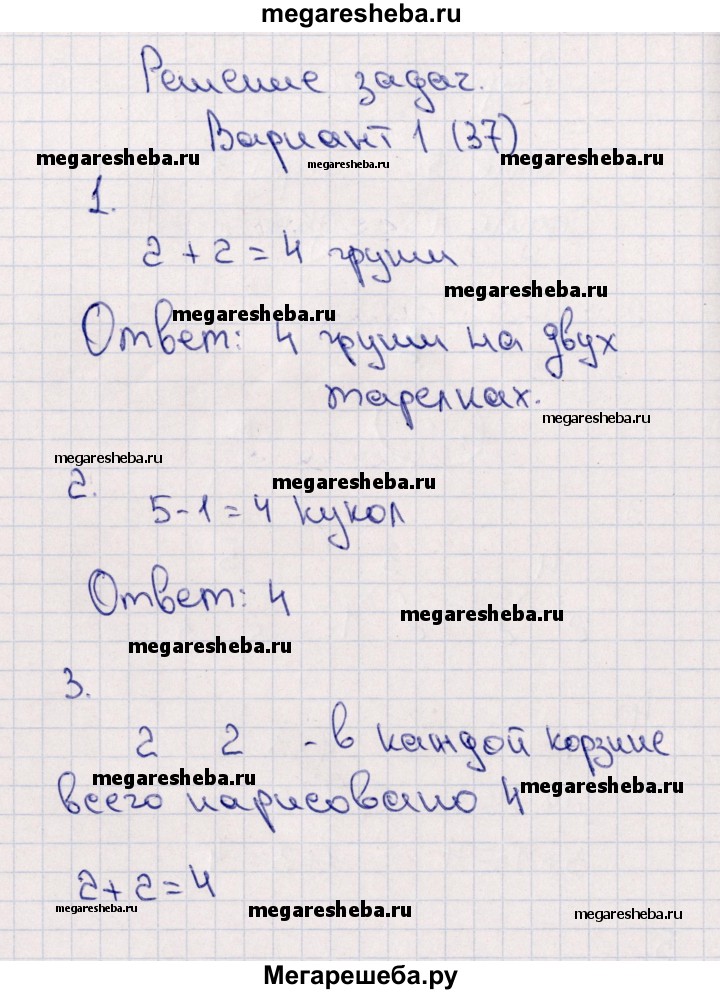 megaresheba.ru
Решение задач.
Вариант 1 (37)
megaresheba.ru megaresheba.ru megaresheba.ru
1.
2 + 2 = 4 груши
megaresheba.ru
megaresheba.ru
Ответ: 4 груши на двух
тарелках.
megaresheba.ru
megaresheba.ru
2.
megaresheba.ru
5-1=4 кукол
Ответ: 4
megaresheba.ru
megaresheba.ru
3.
2 2 - в каждой корзине
megaresheba.ru megaresheba.ru
всего нарисовано 4
2+2=4
megaresheba.ru megaresheba.ru megaresheba.ru
Мегарешеба.ру